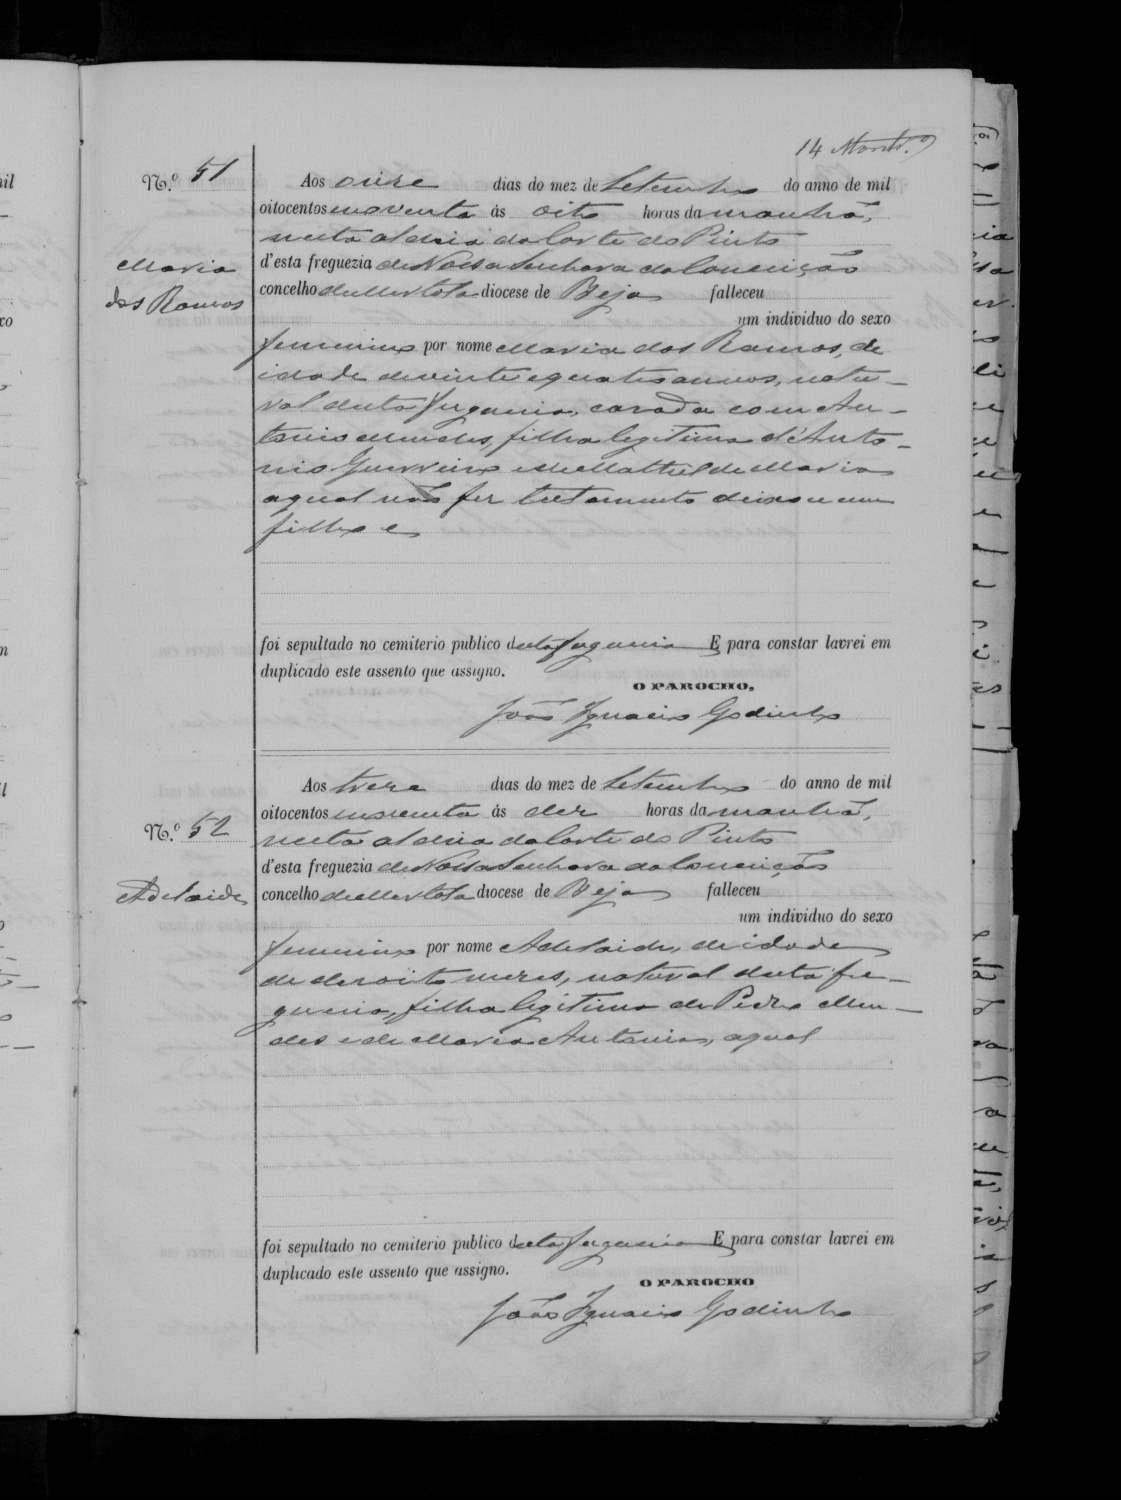 14
N.º 51
Aos onze dias do mez de Setembro do anno de mil
oitocentos noventa ás oito horas da manhã,
nesta aldeia da Corte do Pinto
Maria
dos Ramos
d'esta freguezia de Nossa Senhora da Conceição
concelho de Mertola diocese de Beja falleceu
um individuo do sexo
feminino por nome Maria dos Ramos, de
idade de vinte e quatro annos, natu-
ral desta freguezia, casada com An-
tonio Mendes, filha legitima d'Anto-
nio Guerreiro e de Mathilde Maria
a qual não fez testamento deixou um
filho e
foi sepultado no cemiterio publico desta freguezia E para constar lavrei em
duplicado este assento que assigno.
O PAROCHO,
João Ignacio Godinho
Aos treze dias do mez de Setembro do anno de mil
oitocentos noventa ás dez horas da manhã,
N.º 52
nesta aldeia da Corte do Pinto
d'esta freguezia de Nossa Senhora da Conceição
Adelaide
concelho de Mertola diocese de Beja falleceu
um individuo do sexo
feminino por nome Adelaide, de idade
de dezoito mezes, natural desta fre-
guezia, filha legitima de Pedro Men-
des e de Maria Antonia, a qual
foi sepultado no cemiterio publico desta freguezia E para constar lavrei em
duplicado este assento que assigno.
O PAROCHO
João Ignacio Godinho